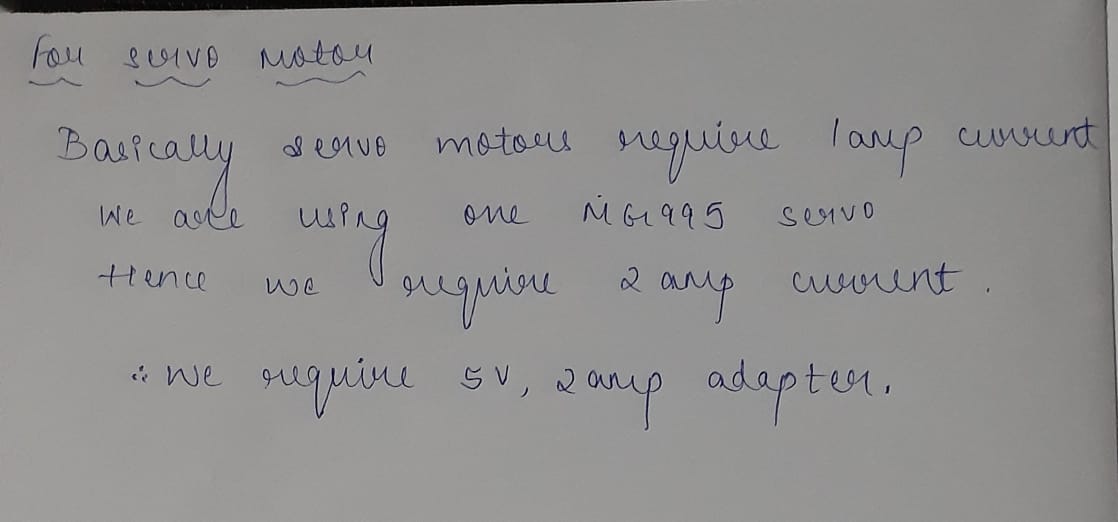 For servo Motor
Basically servo motors require 1 amp current
We are using one MG995 servo
Hence we require 2 amp current.
∴ We require 5V, 2 amp adapter.